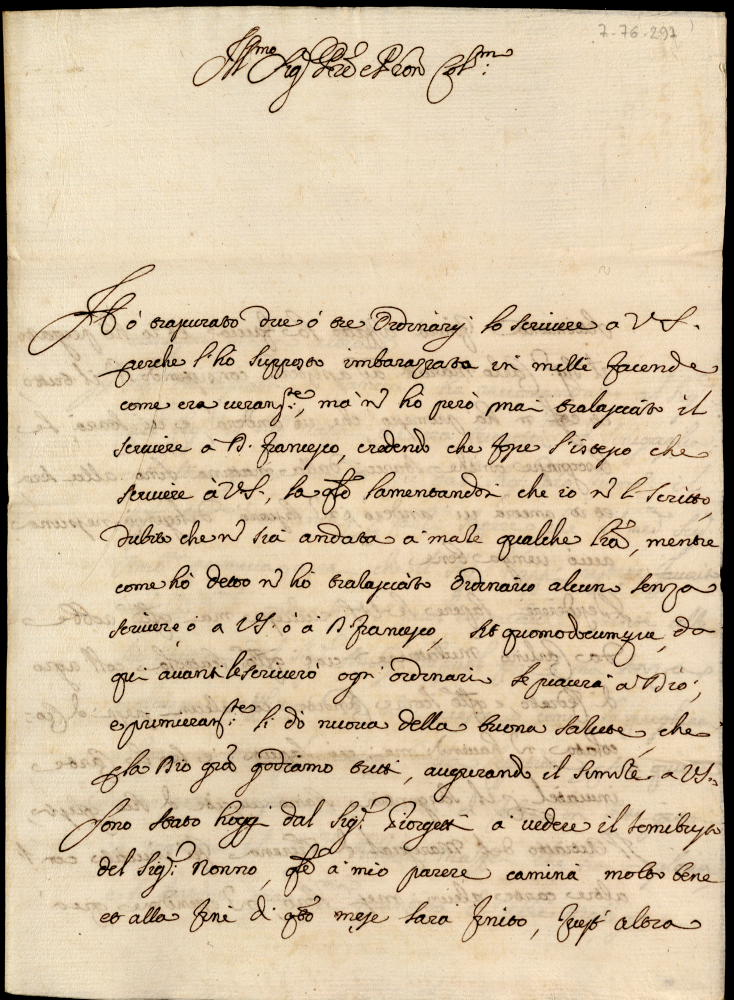 7-76-297
Ill.mo Sig.r Sig.re e Pron Col.mo
Hò trapurato due ó tre Ordinarÿ lo scriuere a V S.
perche l'ho supposto imbarazzata in mille facende
come era ueram.te, mà n̄ hò però mai tralasciato il
scriuere à D. Francesco, credendo che fosse l'istesso che
scriuere à V.S., la q̄le lamentandosi che io n̄ l'scritto,
dubito che n̄ sia andata à male qualche l'r̄a, mentre
come hò detto n̄ hò tralasciato Ordinario alcun senza
scriuere ó a V.S. ò à D. Francesco, sit quomodocumque, da
qui auanti le scriuerò ogni ordinario se piacerà a Dio;
e primieram.te li dò nuoua della buona salute, che
p̄ la Dio gr̄a godiamo tutti, augurando il simile a V.S.
Sono stato hoggi dal Sig.r Giorgetti à vedere il semibusto
del Sig.r Nonno, q̄le à mio parere camina molto bene
et alla fine di q̄to mese sara finito,    altra